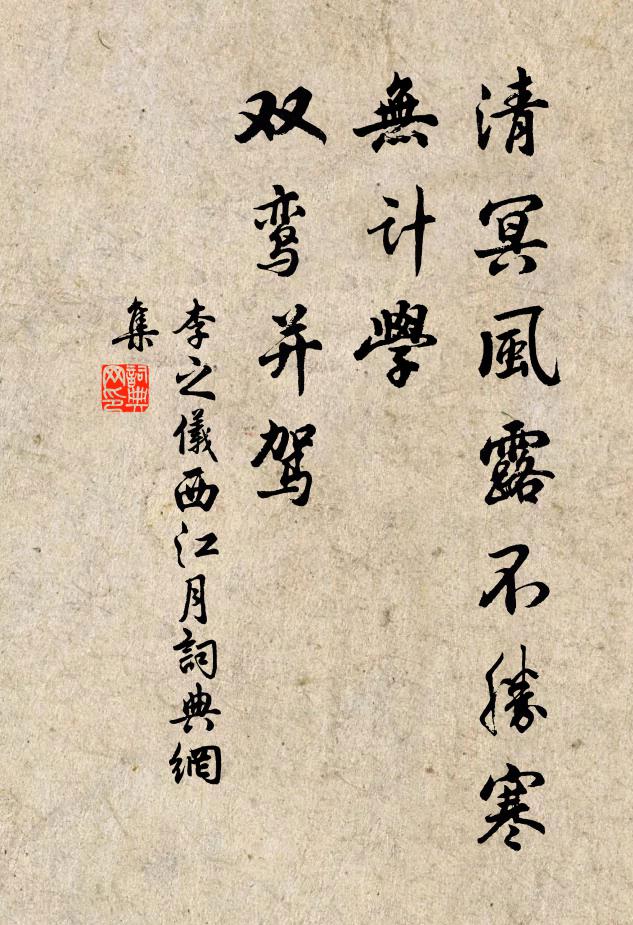 清冥風露不勝寒
無计學
双鸾并駕
李之儀西江月詞典網
集
詞典网印